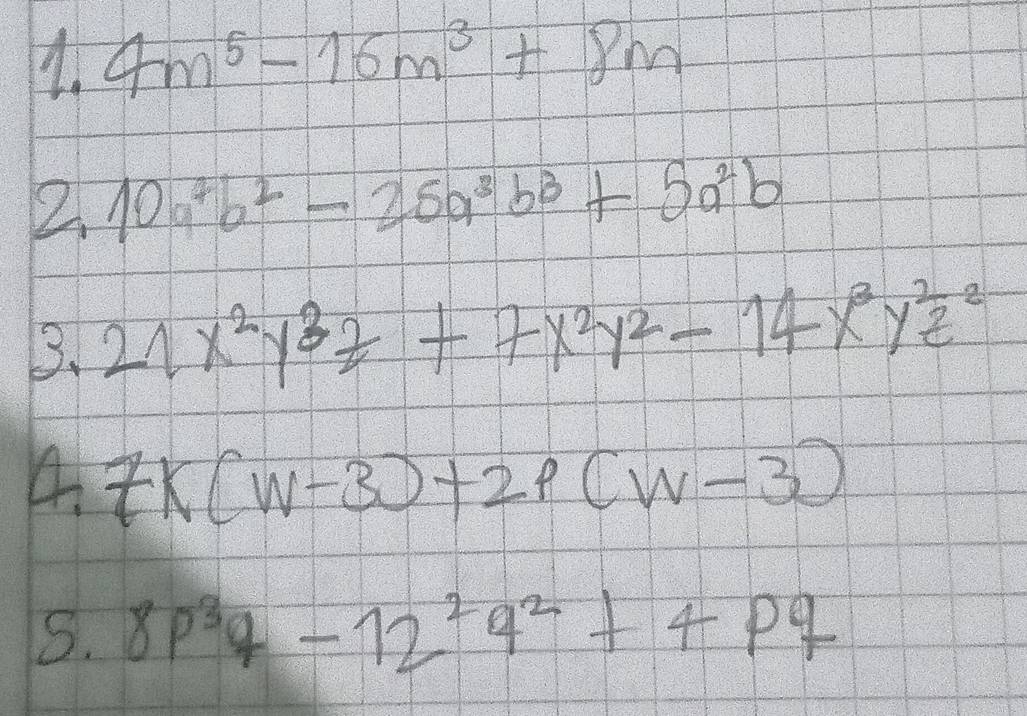 1. 4m⁵ - 16m³ + 8m
2. 10a⁴b² - 25a³b³ + 5a²b
3. 21x²y³z + 7x²y² - 14x³y²z²
4. 7k(w-3)+2p(w-3)
5. 8p³q - 12²q² + 4pq